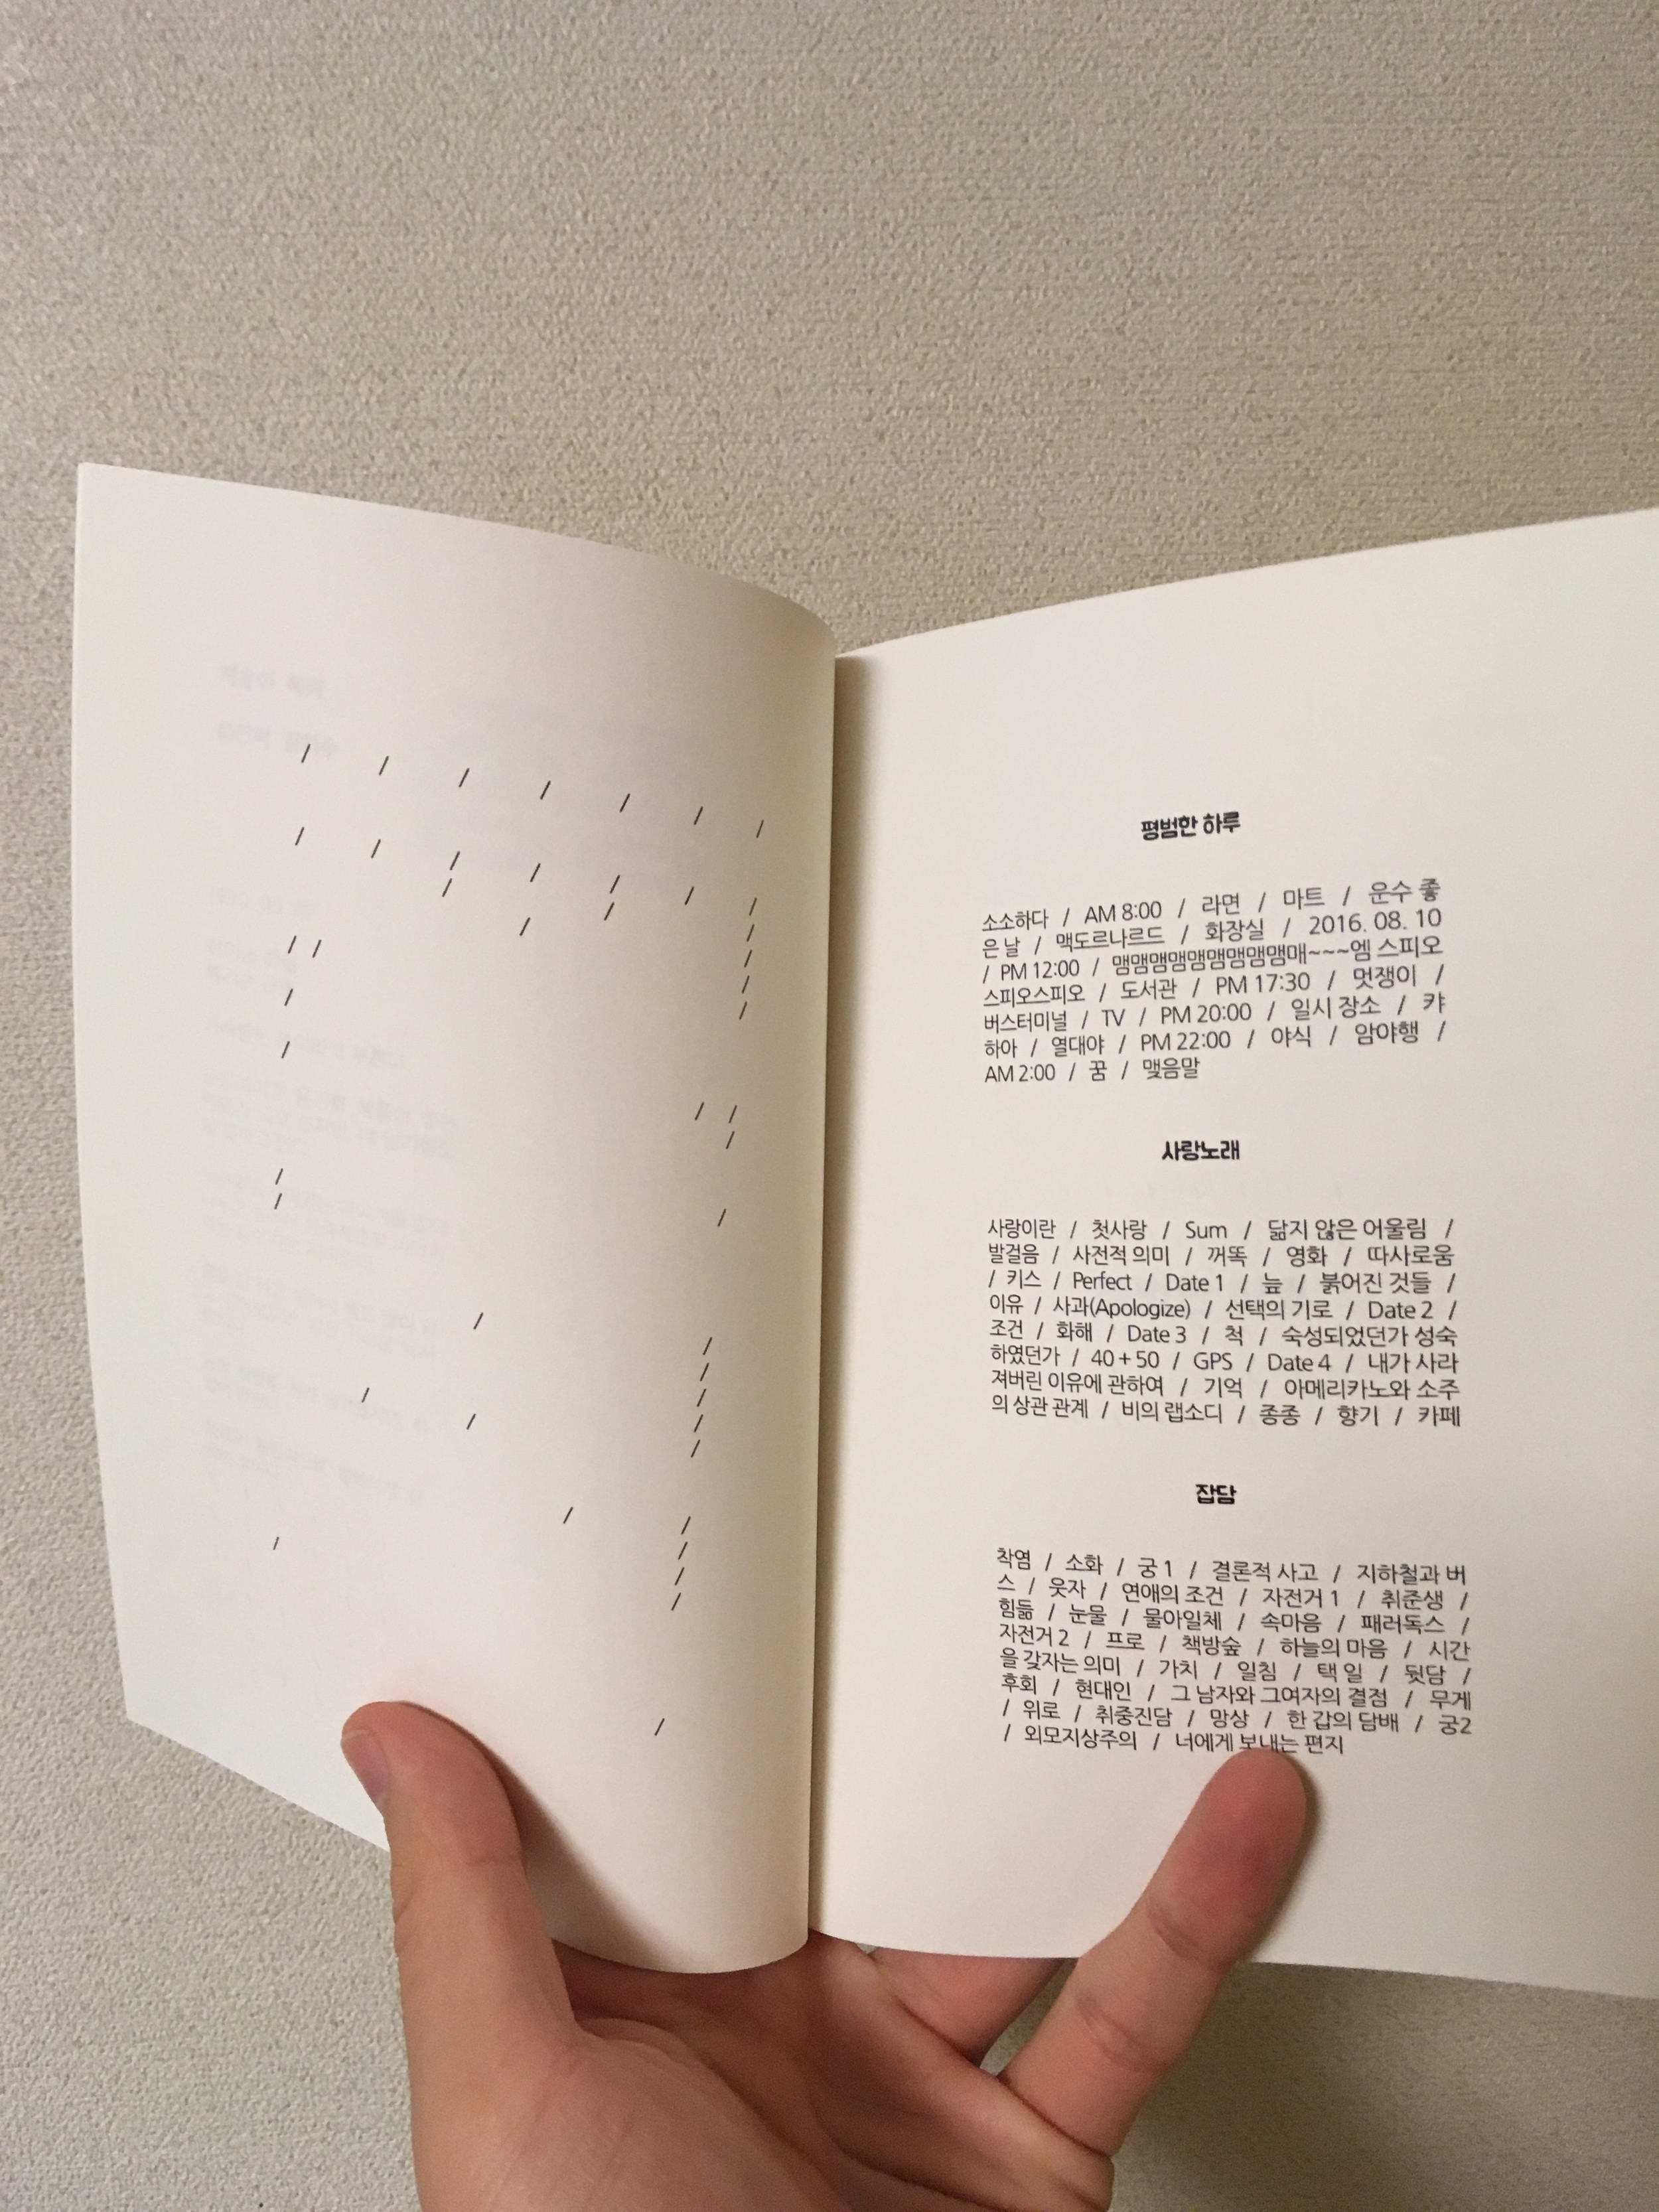 / / / / / / /
/ / / / / / /
/ / /
/ / / /
/
/ /
/
/
/ /
/
/
/
/
/
/
/
/
/
/ /
/
/ /
/
/ /
/
/
/
/
평범한 하루
소소하다 / AM 8:00 / 라면 / 마트 / 운수 좋
은 날 / 맥도르나르드 / 화장실 / 2016. 08. 10
/ PM 12:00 / 맴맴맴맴맴맴맴맴맴매~~~엠 스피오
스피오스피오 / 도서관 / PM 17:30 / 멋쟁이 /
버스터미널 / TV / PM 20:00 / 일시 장소 / 캬
하아 / 열대야 / PM 22:00 / 야식 / 암야행 /
AM 2:00 / 꿈 / 맺음말
사랑노래
사랑이란 / 첫사랑 / Sum / 닮지 않은 어울림 /
발걸음 / 사전적 의미 / 꺼똑 / 영화 / 따사로움
/ 키스 / Perfect / Date 1 / 늪 / 붉어진 것들 /
이유 / 사과(Apologize) / 선택의 기로 / Date 2 /
조건 / 화해 / Date 3 / 척 / 숙성되었던가 성숙
하였던가 / 40 + 50 / GPS / Date 4 / 내가 사라
져버린 이유에 관하여 / 기억 / 아메리카노와 소주
의 상관 관계 / 비의 랩소디 / 종종 / 향기 / 카페
잡담
착염 / 소화 / 궁 1 / 결론적 사고 / 지하철과 버
스 / 웃자 / 연애의 조건 / 자전거 1 / 취준생 /
힘듦 / 눈물 / 물아일체 / 속마음 / 패러독스 /
자전거 2 / 프로 / 책방숲 / 하늘의 마음 / 시간
을 갖자는 의미 / 가치 / 일침 / 택 일 / 뒷담 /
후회 / 현대인 / 그 남자와 그여자의 결점 / 무게
/ 위로 / 취중진담 / 망상 / 한 갑의 담배 / 궁2
/ 외모지상주의 / 너에게 보내는 편지